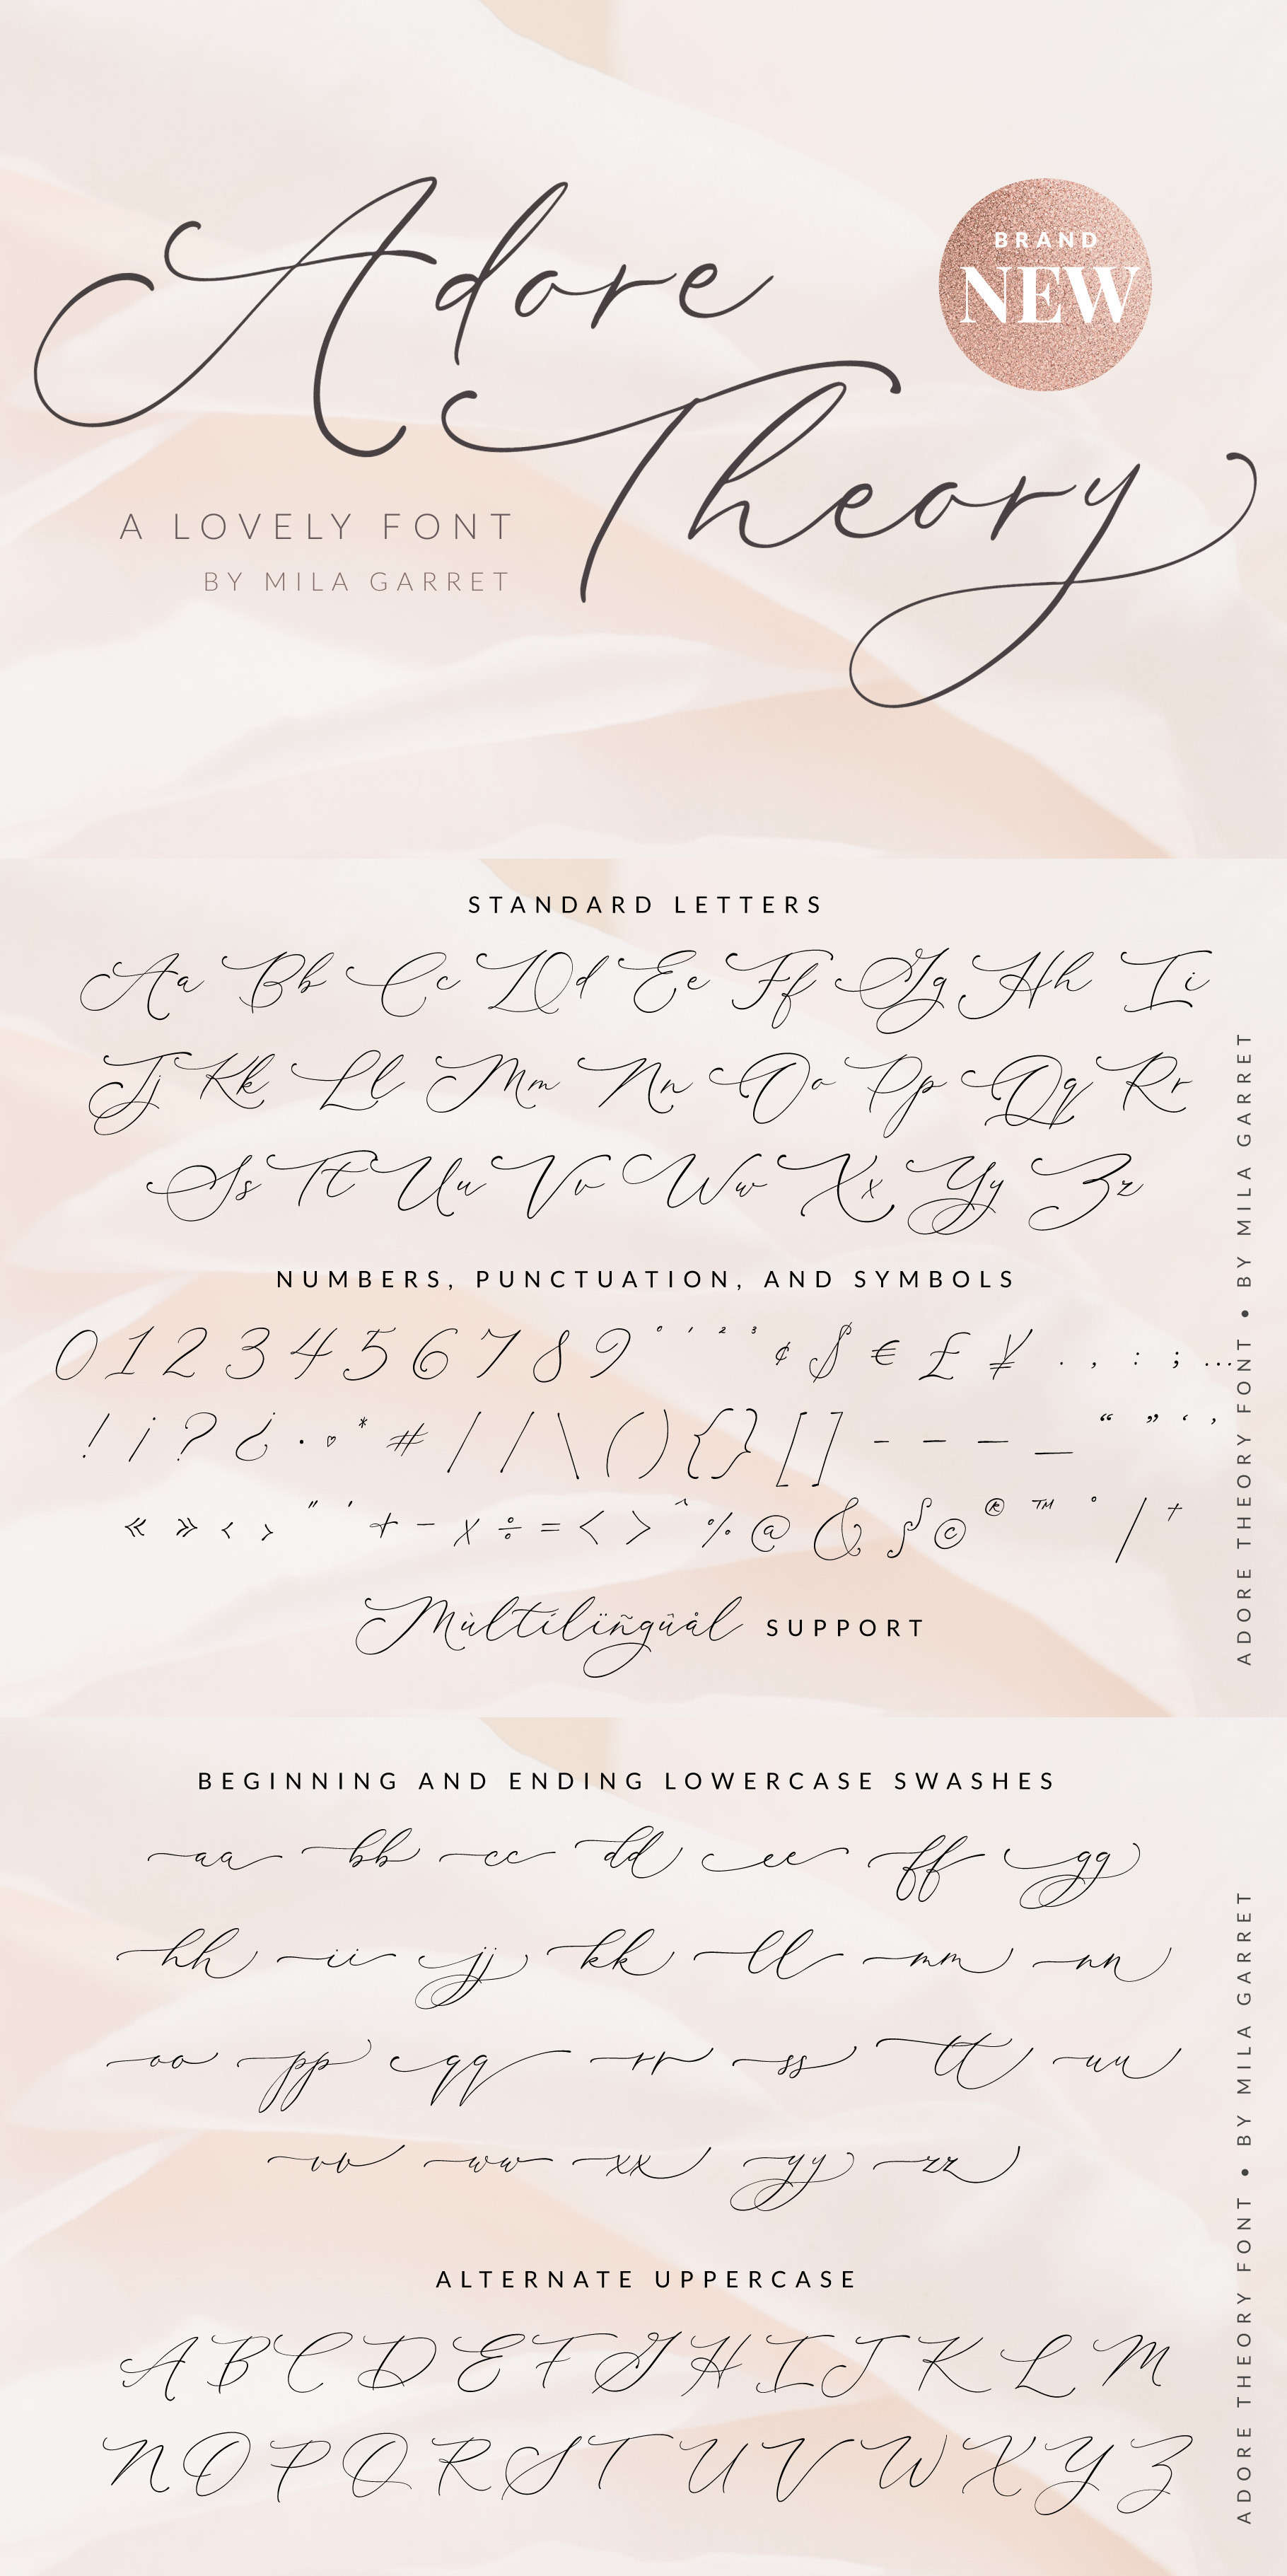 Adore
BRAND
NEW
Theory
A LOVELY FONT
BY MILA GARRET
STANDARD LETTERS
Aa Bb Cc Dd Ee Ff Gg Hh Ii
Jj Kk Ll Mm Nn Oo Pp Qq Rr
Ss Tt Uu Vv Ww Xx Yy Zz
NUMBERS, PUNCTUATION, AND SYMBOLS
0 1 2 3 4 5 6 7 8 9 ⁰ ¹ ² ³ ¢ $ € £ ¥ . , : ; …
! ¡ ? ¿ · ♡ * # | / \ ( ) { } [ ] - – — _ “ ” ‘ ’
« » ‹ › " ' + − × ÷ = < > ^ % @ & § © ® ™ ° / †
Mùltílïñgûål SUPPORT
ADORE THEORY FONT • BY MILA GARRET
BEGINNING AND ENDING LOWERCASE SWASHES
aa bb cc dd ee ff gg
hh ii jj kk ll mm nn
oo pp qq rr ss tt uu
vv ww xx yy zz
ALTERNATE UPPERCASE
A B C D E F G H I J K L M
N O P Q R S T U V W X Y Z
ADORE THEORY FONT • BY MILA GARRET